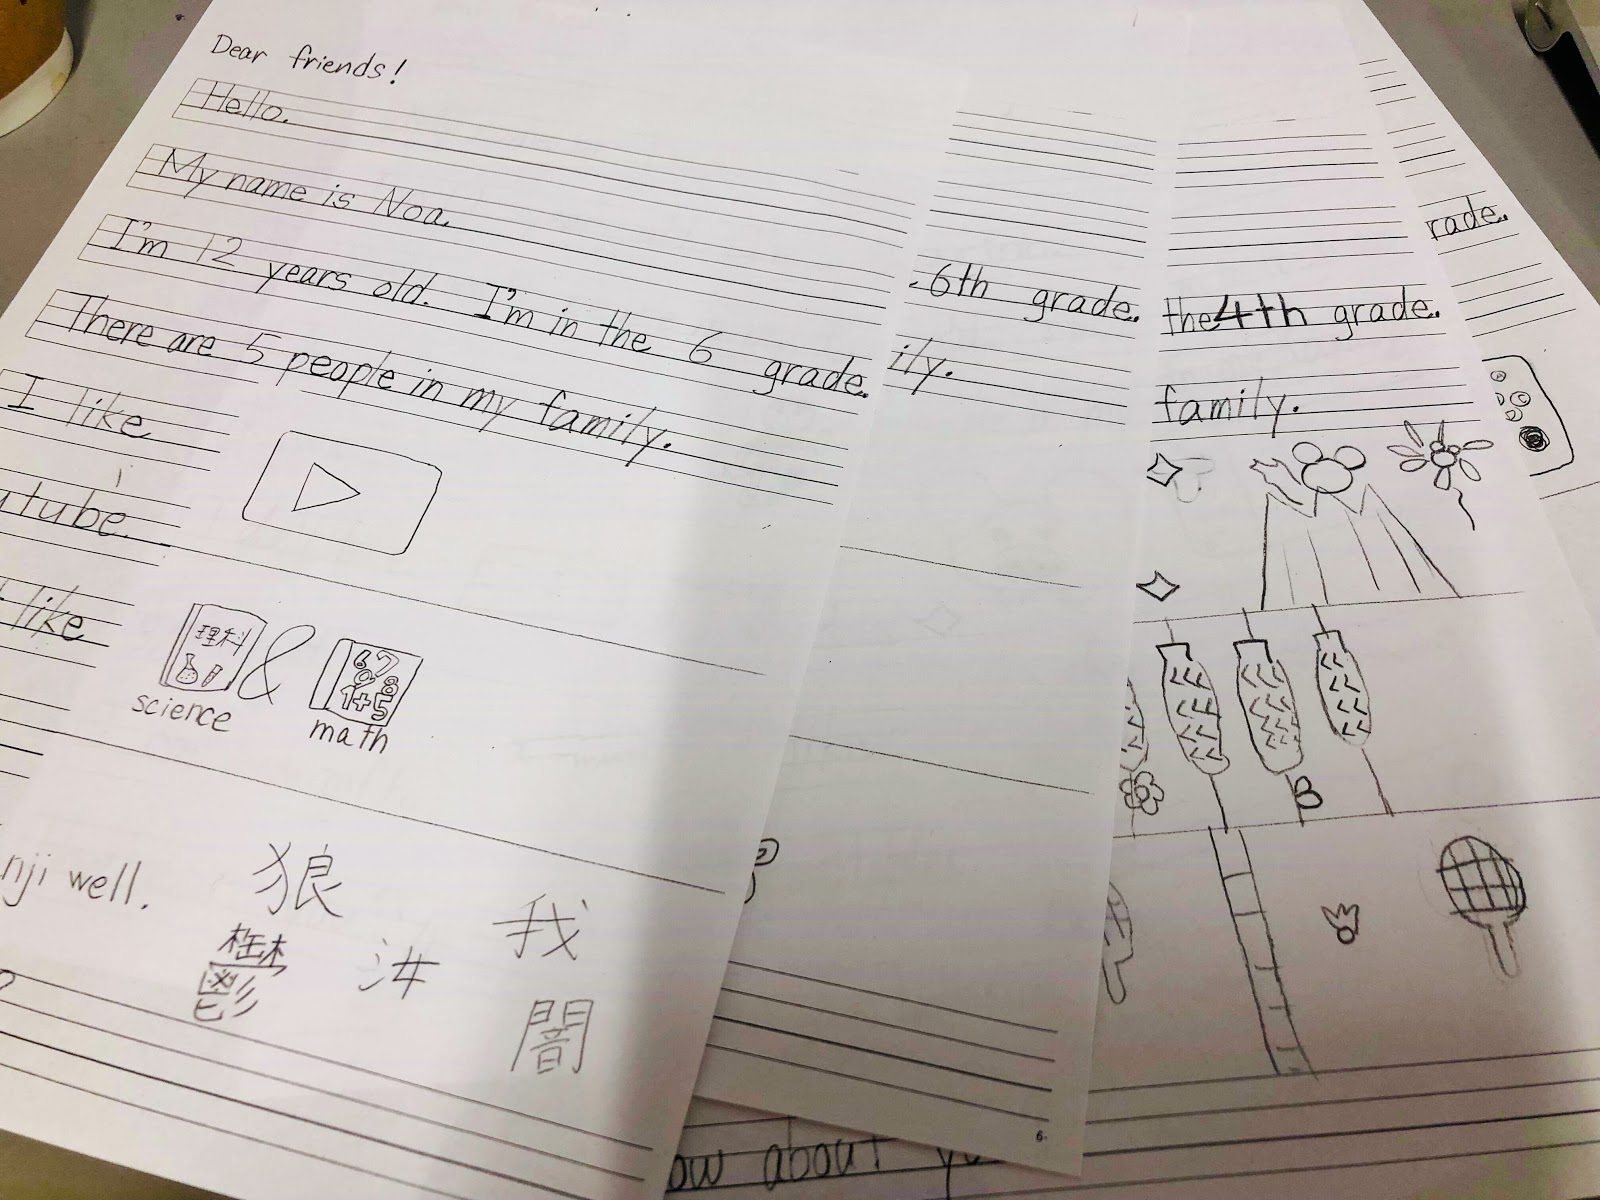 Dear friends!
Hello.
My name is Noa.
I'm 12 years old. I'm in the 6 grade.
There are 5 people in my family.
I like
utube.
like
理科
science
&
6 7
1+5
math
nji well.
狼
鬱
我
闇
6th grade.
ily.
6.
the 4th grade.
family.
rade.
ow about